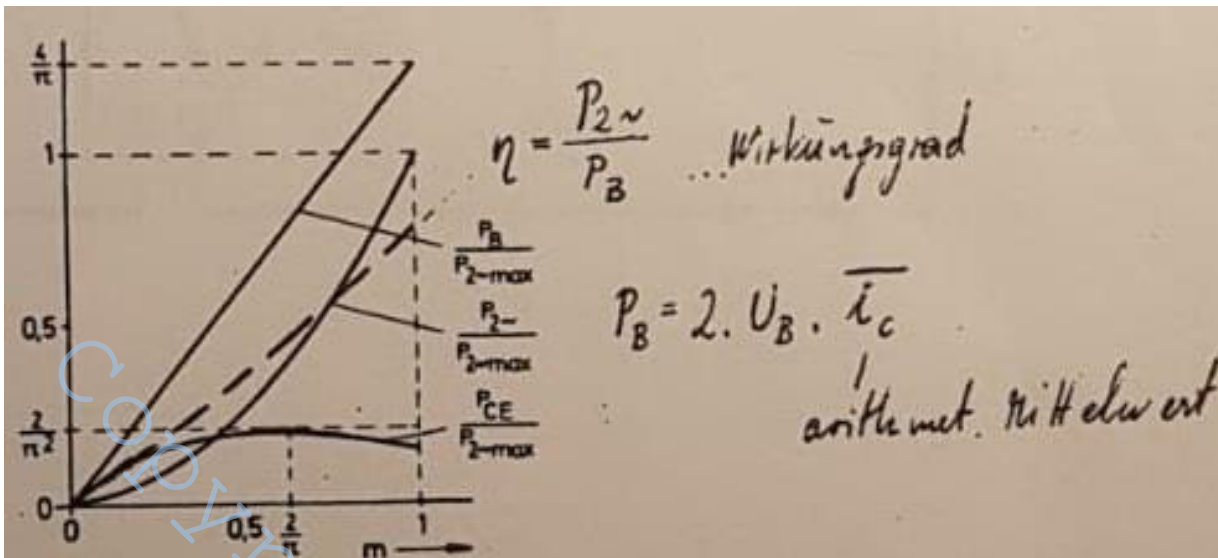 4/π
1
0,5
2/π²
0
0
0,5
2/π
1
m
P_B / P_2~max
P_2~ / P_2~max
P_CE / P_2~max
η = P_2~ / P_B ...Wirkungsgrad
P_B = 2. U_B . i_c
arithmet. Mittelwert
Copyr